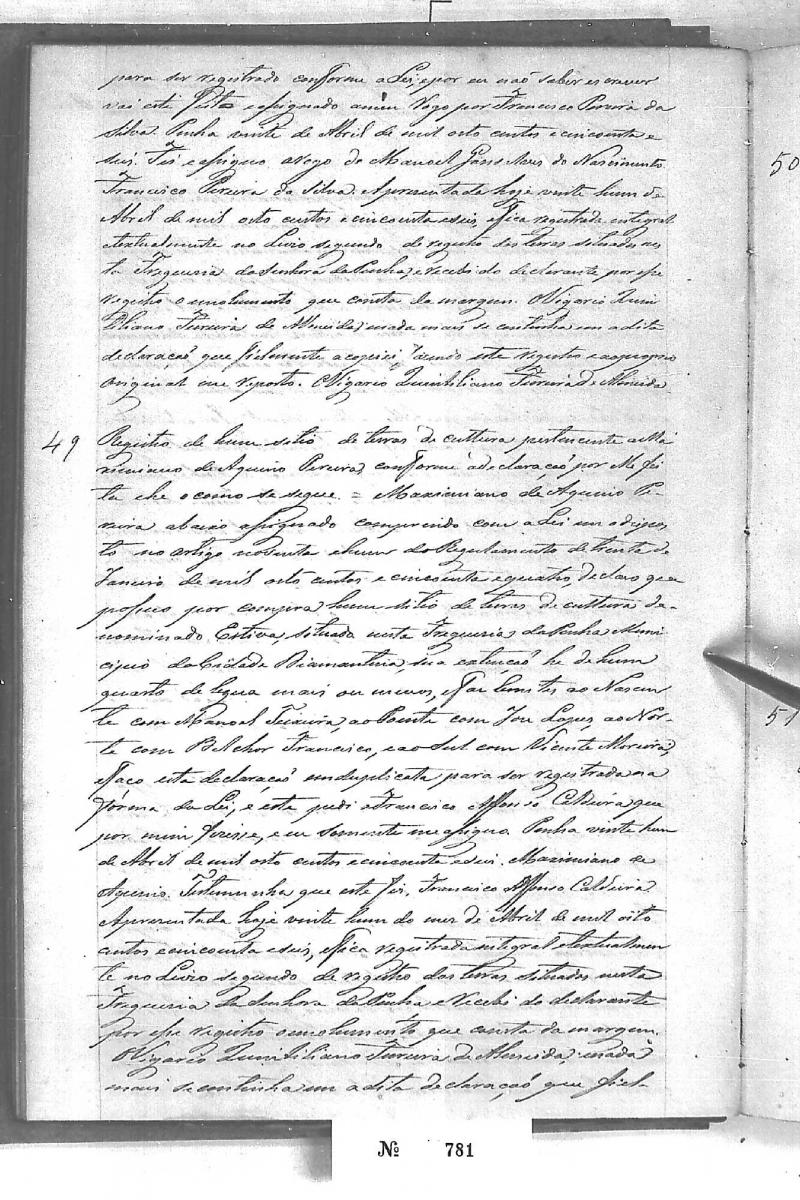 para ser registrado conforme a Lei, e por eu naõ saber escrever
vai este feito e assignado a meu rogo por Francisco Pereira da
Silva. Penha vinte de Abril de mil oito centos e cincoenta e
seis. Fis e assigno a rogo de Manoel Gonsalves do Nascimento
Francisco Pereira da Silva. Apresentada hoje vinte hum de
Abril de mil oito centos e cincoenta e seis, e fica registrada integral
e textualmente no Livro segundo de registro das terras situadas nes
ta Freguesia da Senhora da Penha, e recebi do declarante por esse
registro o emolumento que consta da margem. O Vigario Quin
tiliano Ferreira de Almeida; e nada mais se continha em a dita
declaraçaõ que fielmente a copiei, fasendo este registro e ao proprio
original me reporto. O Vigario Quintiliano Ferreira de Almeida
49 Registro de hum sitio de terras de cultura pertencente a Ma
ximiano de Aquino Pereira, conforme a declaraçaõ por elle fei
ta che o como se segue. = Maximiano de Aquino Pe-
reira abaixo assignado comprindo com a Lei em o dispos
to no artigo noventa e hum do Regulamento de trinta de
Janeiro de mil oito centos e cincoenta e quatro, declaro que
possuo por compra hum sitio de terras de cultura de-
nominado Estiva, situado nesta Freguesia da Penha Muni
cipio da Cidade Diamantina, sua extençaõ he de hum
quarto de legua mais ou menos, e faz lemites ao Nascen
te com Manoel Teixeira, ao Poente com Jose Lopes, ao Nor-
te com Belchor Francisco, e ao Sul com Vicente Moreira,
e faço esta declaraçaõ em duplicata para ser registrada na
forma da Lei, e este pedi a Francisco Affonso Caldeira que
por mim fizesse, e eu somente me assigno. Penha vinte hum
de Abril de mil oito centos e cincoenta e seis. Maximiano de
Aquino. Testemunha que este fis, Francisco Affonso Caldeira
Apresentada hoje vinte hum do mes de Abril de mil oito
centos e cincoenta e seis, e fica registrada integral e textualmen
te no Livro segundo de registro das terras situadas nesta
Freguesia da Senhora da Penha e recebi do declarante
por esse registro o emolumento que consta da margem.
O Vigario Quintiliano Ferreira de Almeida; e nada
mais se continha em a dita declaraçaõ que fiel-
50
51
Nº 781